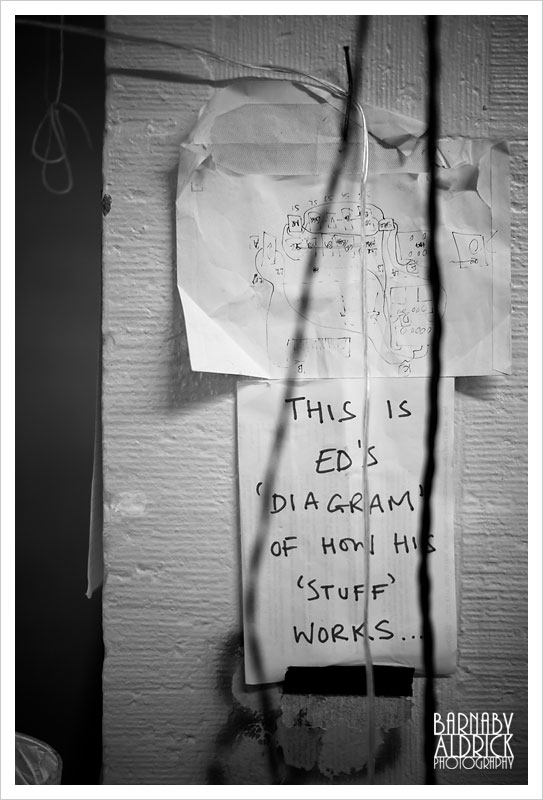 THIS IS
ED'S
'DIAGRAM'
OF HOW HIS
'STUFF'
WORKS...
BARNABY
ALDRICK
PHOTOGRAPHY